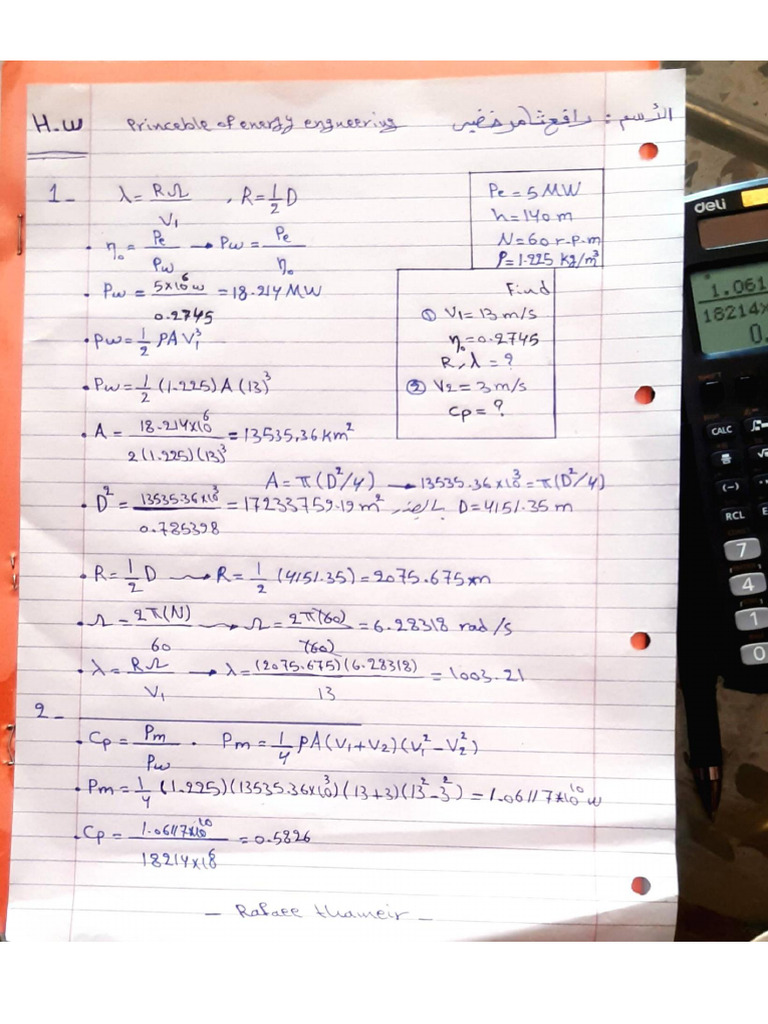 H.W Princeble of energy engneering الأسم : رافع ثامر خضير
1- λ = RΩ / V₁ , R = 1/2 D
Pe = 5 MW
h = 140 m
N = 60 r.p.m
ρ = 1.225 kg/m³
• η₀ = Pe / Pw → Pw = Pe / η₀
• Pw = 5×10⁶ w / 0.2745 = 18.214 MW
Find
① V₁ = 13 m/s
η₀ = 0.2745
R, λ = ?
② V2 = 3 m/s
Cp = ?
• Pw = 1/2 ρAV₁³
• Pw = 1/2 (1.225) A (13)³
• A = 18.214×10⁶ / 2(1.225)(13)³ = 13535,36 Km²
A = π(D²/4) → 13535.36×10³ = π(D²/4)
• D² = 13535.36×10³ / 0.785398 = 17233759.19 m² D = 4151.35 m
• R = 1/2 D → R = 1/2 (4151.35) = 2075.675 m
• Ω = 2π(N) / 60 → Ω = 2π(60) / (60) = 6.28318 rad/s
• λ = RΩ / V₁ → λ = (2075.675)(6.28318) / 13 = 1003.21
2-
• Cp = Pm / Pw . Pm = 1/4 ρA(V₁+V₂)(V₁²-V₂²)
• Pm = 1/4 (1.225)(13535.36×10³)(13+3)(13²-3²) = 1.06117×10¹⁰ w
• Cp = 1.06117×10¹⁰ / 18214×10⁶ = 0.5826
- Rafaee thameir -
deli
1.061
18214×
0.
CALC
(-)
RCL
7
4
1
0